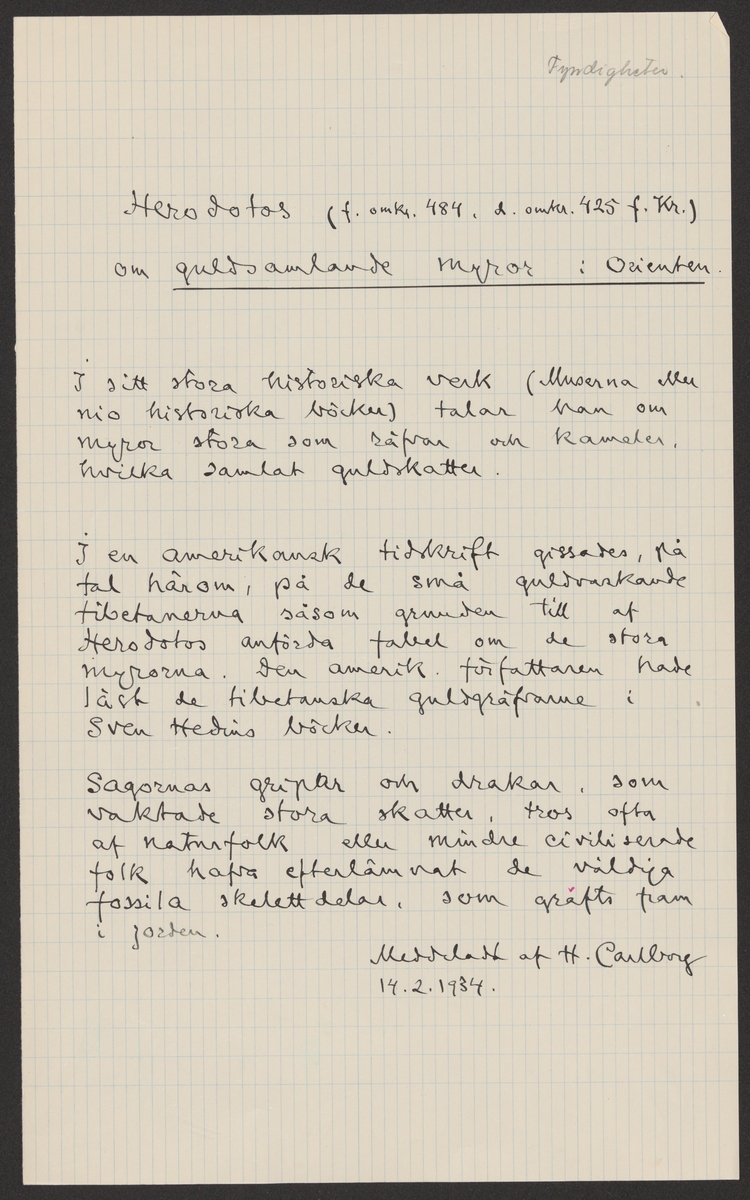 Fyndigheter.
Herodotos (f. omkr. 484, d. omkr. 425 f. Kr.)
om guldsamlande myror i Orienten.
I sitt stora historiska verk (Muserna eller
nio historiska böcker) talar han om
myror stora som räfvar och kameler,
hvilka samlat guldskatter.
I en amerikansk tidskrift gissades, på
tal härom, på de små guldvaskande
tibetanerna såsom grunden till af
Herodotos anförda fabel om de stora
myrorna. Den amerik. författaren hade
läst de tibetanska guldgräfvarne i
Sven Hedins böcker.
Sagornas gripar och drakar, som
vaktade stora skatter, tros ofta
af naturfolk eller mindre civiliserade
folk hafva efterlämnat de väldiga
fossila skelettdelar, som gräfts fram
i jorden.
Meddeladt af H. Carlborg
14.2.1934.